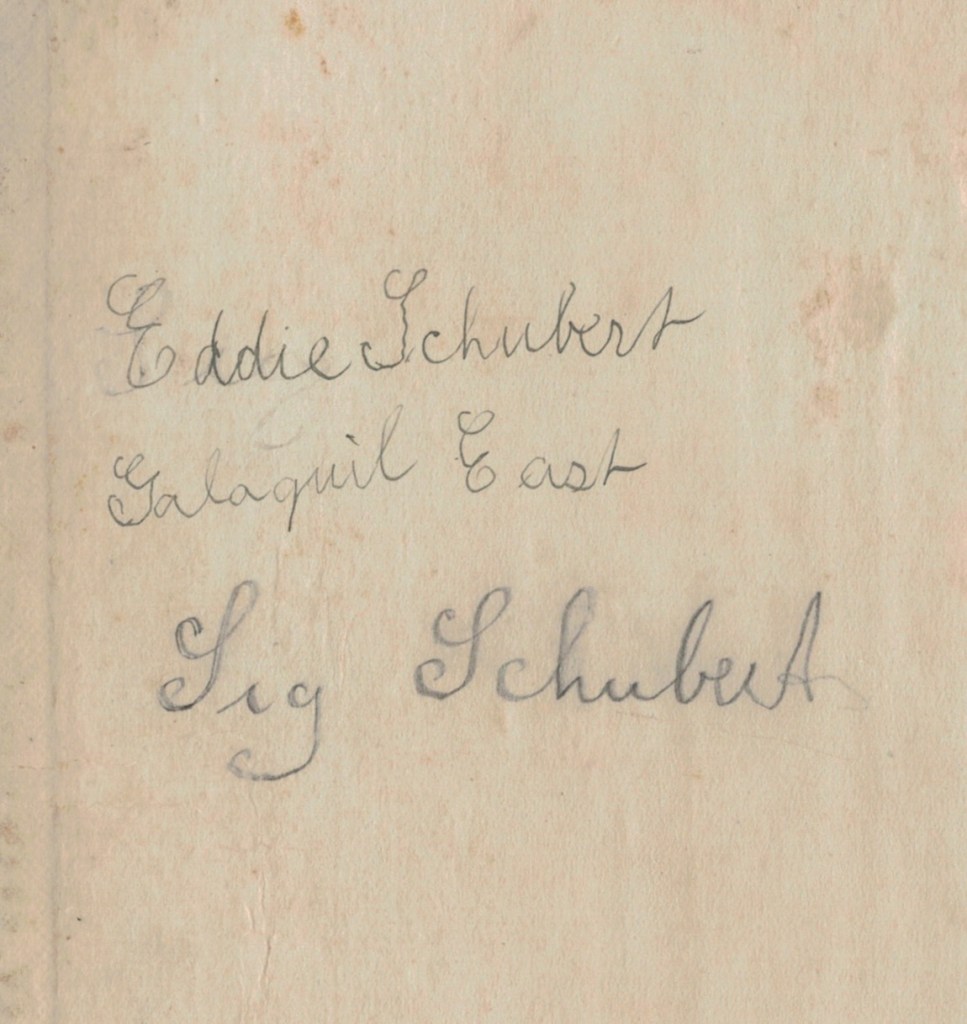 Eddie Schubert
Galaquil East
Sig Schubert